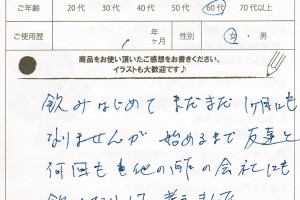 ご年齢 20代 30代 40代 50代 60代 70代以上
ご使用歴 年 ヶ月 性別 女・男
商品をお使い頂いたご感想をお書きください。
イラストも大歓迎です♪
飲みはじめて まだまだ1ケ月にも
なりませんが 始めるまで 友達と
何回も 他の 会社にも